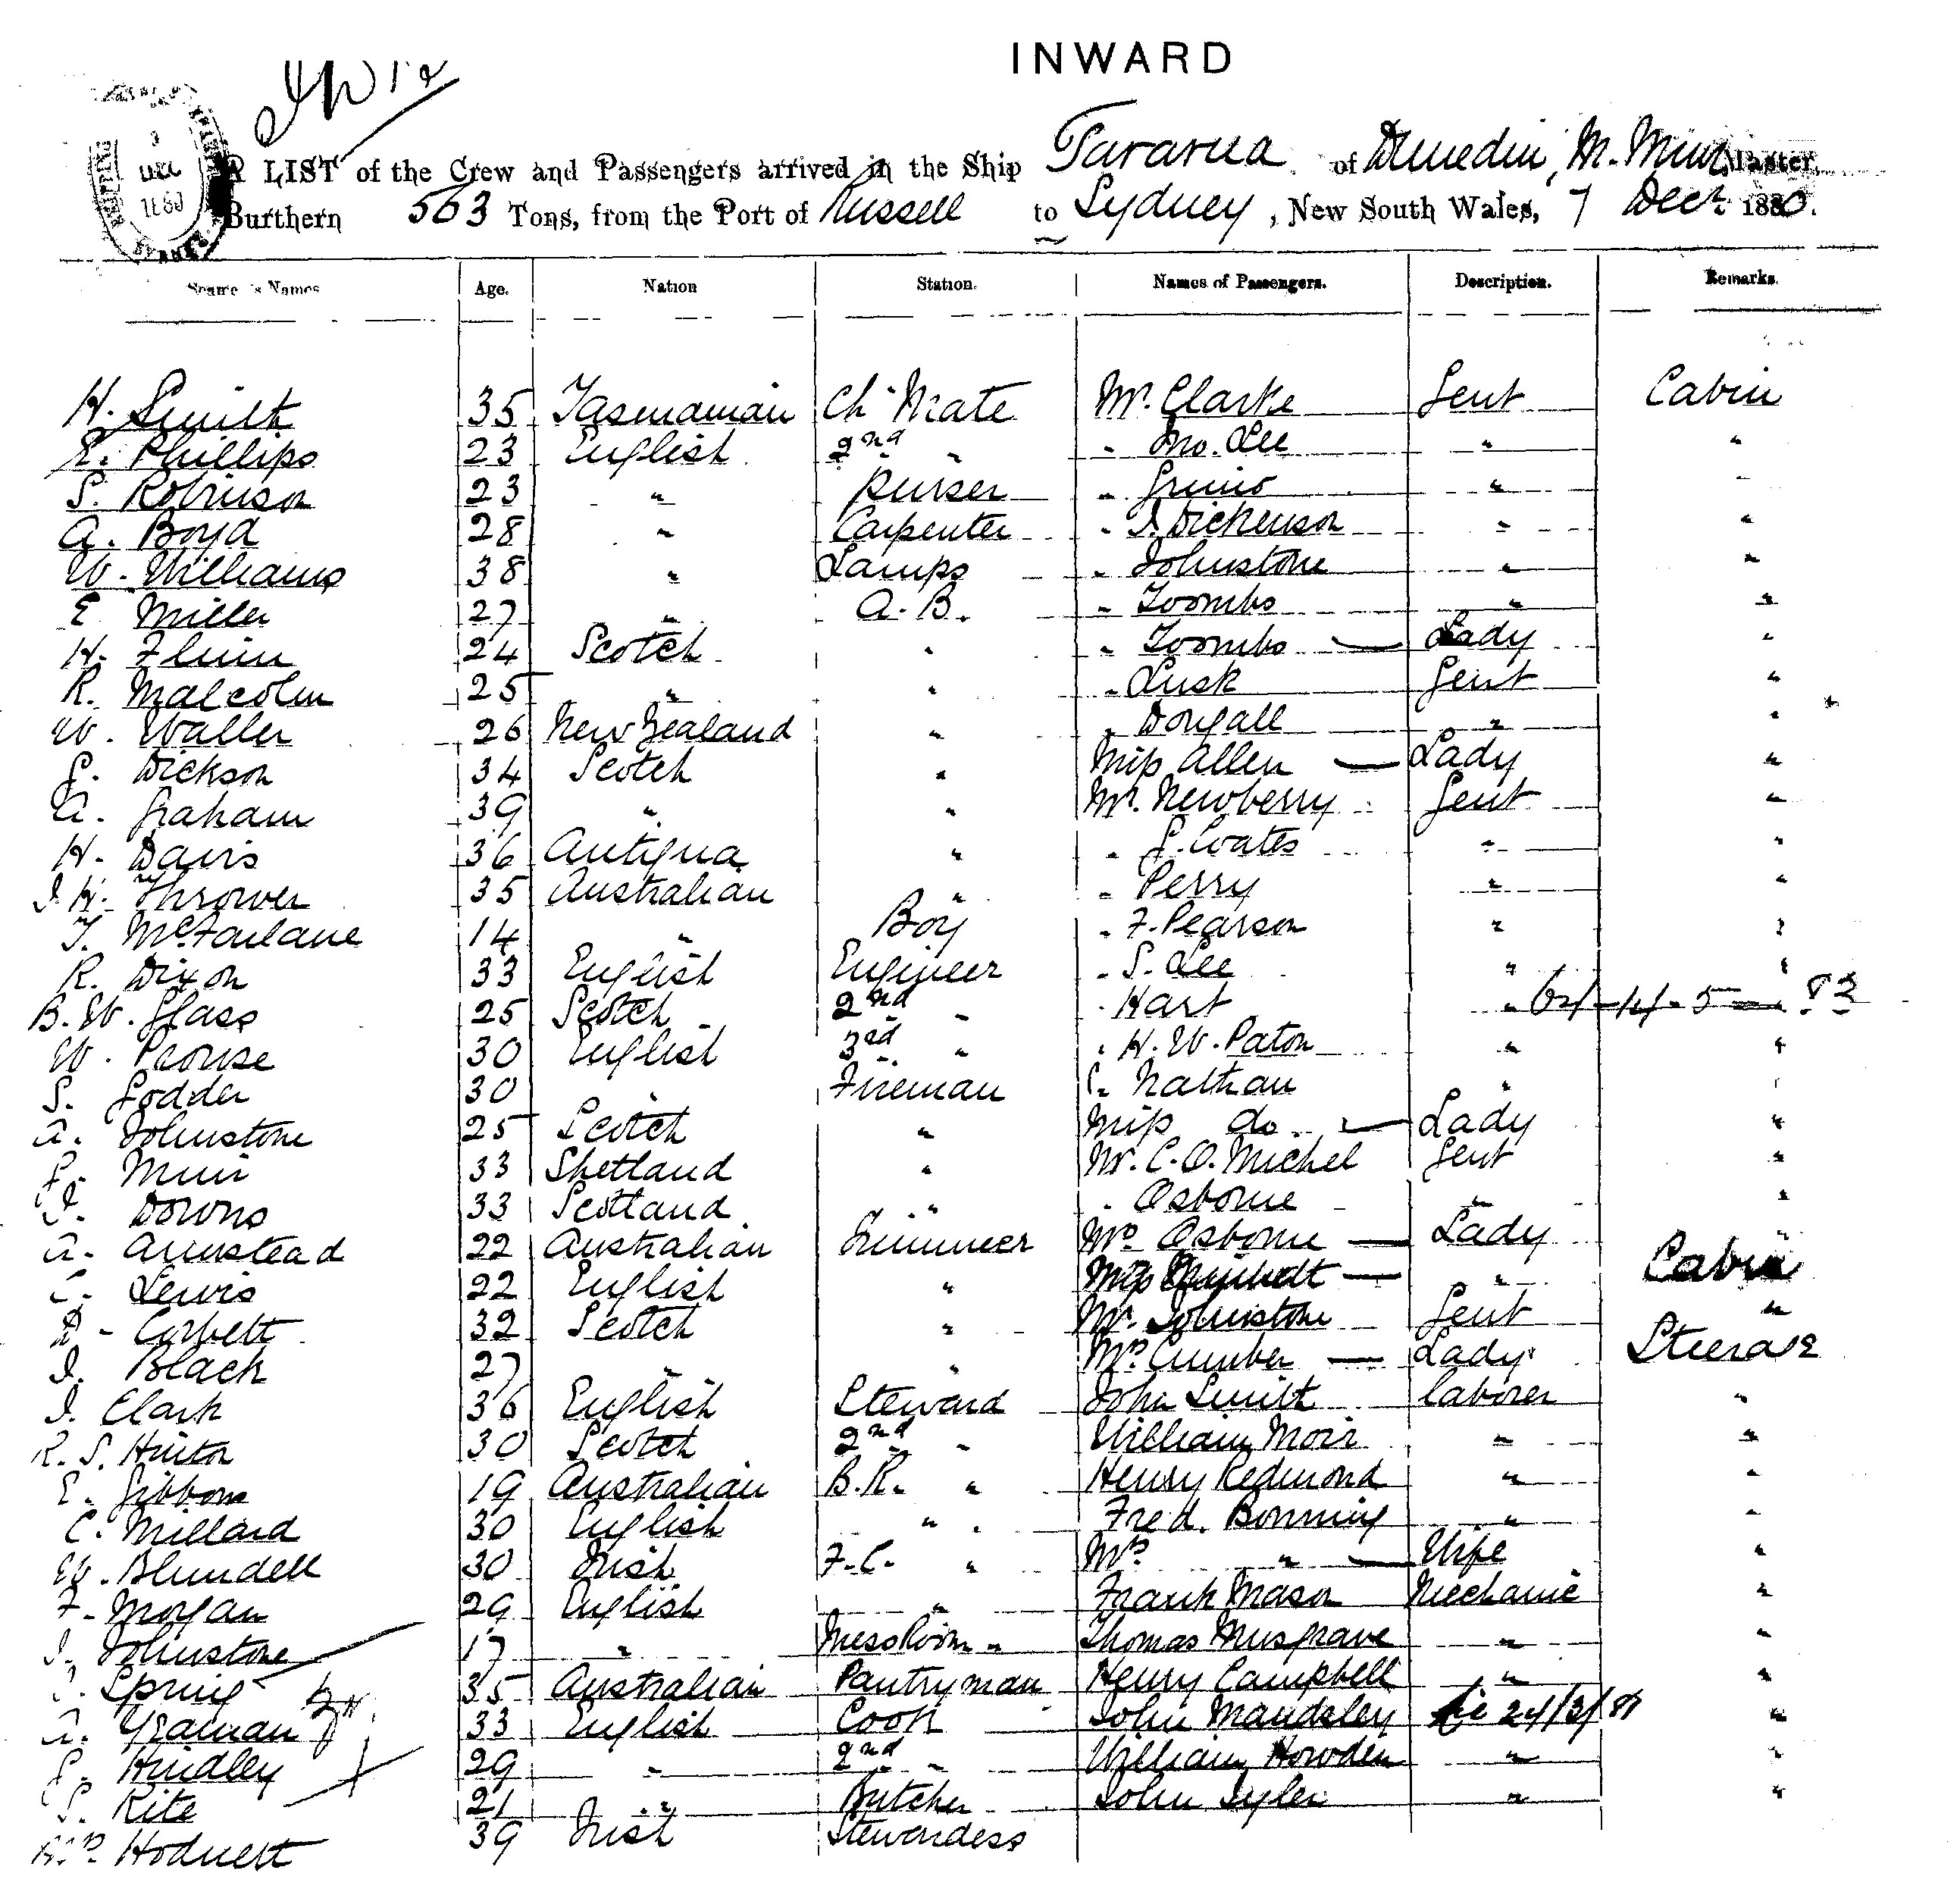 INWARD
A LIST of the Crew and Passengers arrived in the Ship Tararua of Dunedin, M. Muir Master,
Burthern 563 Tons, from the Port of Russell to Sydney, New South Wales, 7 Decr. 1880.
Names Age. Nation Station. Names of Passengers. Description. Remarks.
H. Smith 35 Tasmanian Ch. Mate Mr. Clarke Gent Cabin
E. Phillips 23 English 2nd " " Jno. Lee " "
S. Robinson 23 " Purser " " "
A. Boyd 28 " Carpenter " J. Dickenson " "
W. Williams 38 " Lamps " Johnstone " "
E Miller 27 " A.B. " Toombs " "
H. Flinn 24 Scotch " " Toombs Lady "
R. Malcolm 25 " " " Lusk Gent "
W. Waller 26 New Zealand " " Dougall " "
G. Dickson 34 Scotch " Miss Allen Lady "
A. Graham 39 " " Mr. Newberry Gent "
H. Davis 36 Antigua " " G. Coates " "
J. H. Thrower 35 Australian " " Perry " "
T. McFarlane 14 " Boy " F. Pearson " "
R. Dixon 33 English Engineer " S. Lee " "
B. W. Glass 25 Scotch 2nd " " Hart "
W. Pearse 30 English 3rd " " H. W. Paton " "
S. Lodder 30 " Fireman " Nathan " "
A. Johnstone 25 Scotch " Miss do. Lady "
G. Muir 33 Shetland " Mr. C. O. Michel Gent "
J. Downs 33 Scotland " " Osborne " "
A. Armstead 22 Australian Trimmer Mrs Osborne Lady "
C. Lewis 22 English " Miss " Cabin
D. Corbett 32 Scotch " Mr. Johnstone Gent "
J. Black 27 " " Mrs Cumber Lady Steerage
J. Clark 36 English Steward John Smith laborer "
R. S. Hinton 30 Scotch 2nd " William Moir " "
E. Gibbons 19 Australian B.R. " Henry Redmond " "
C. Millard 30 English " Fred. Bonning " "
W. Blundell 30 Irish F.C. " Mrs " Wife "
F. Morgan 29 English " Frank Mason Mechanic "
J. Johnstone 17 " Mess Room " Thomas Musgrave " "
Spring 35 Australian Pantryman Henry Campbell " "
A. 33 English Cook John Maudsley "
G. Hindley 29 " 2nd " William Howden " "
S. Rite 21 " Butcher John Tyler " "
Mrs. Hodnett 39 Irish Stewardess